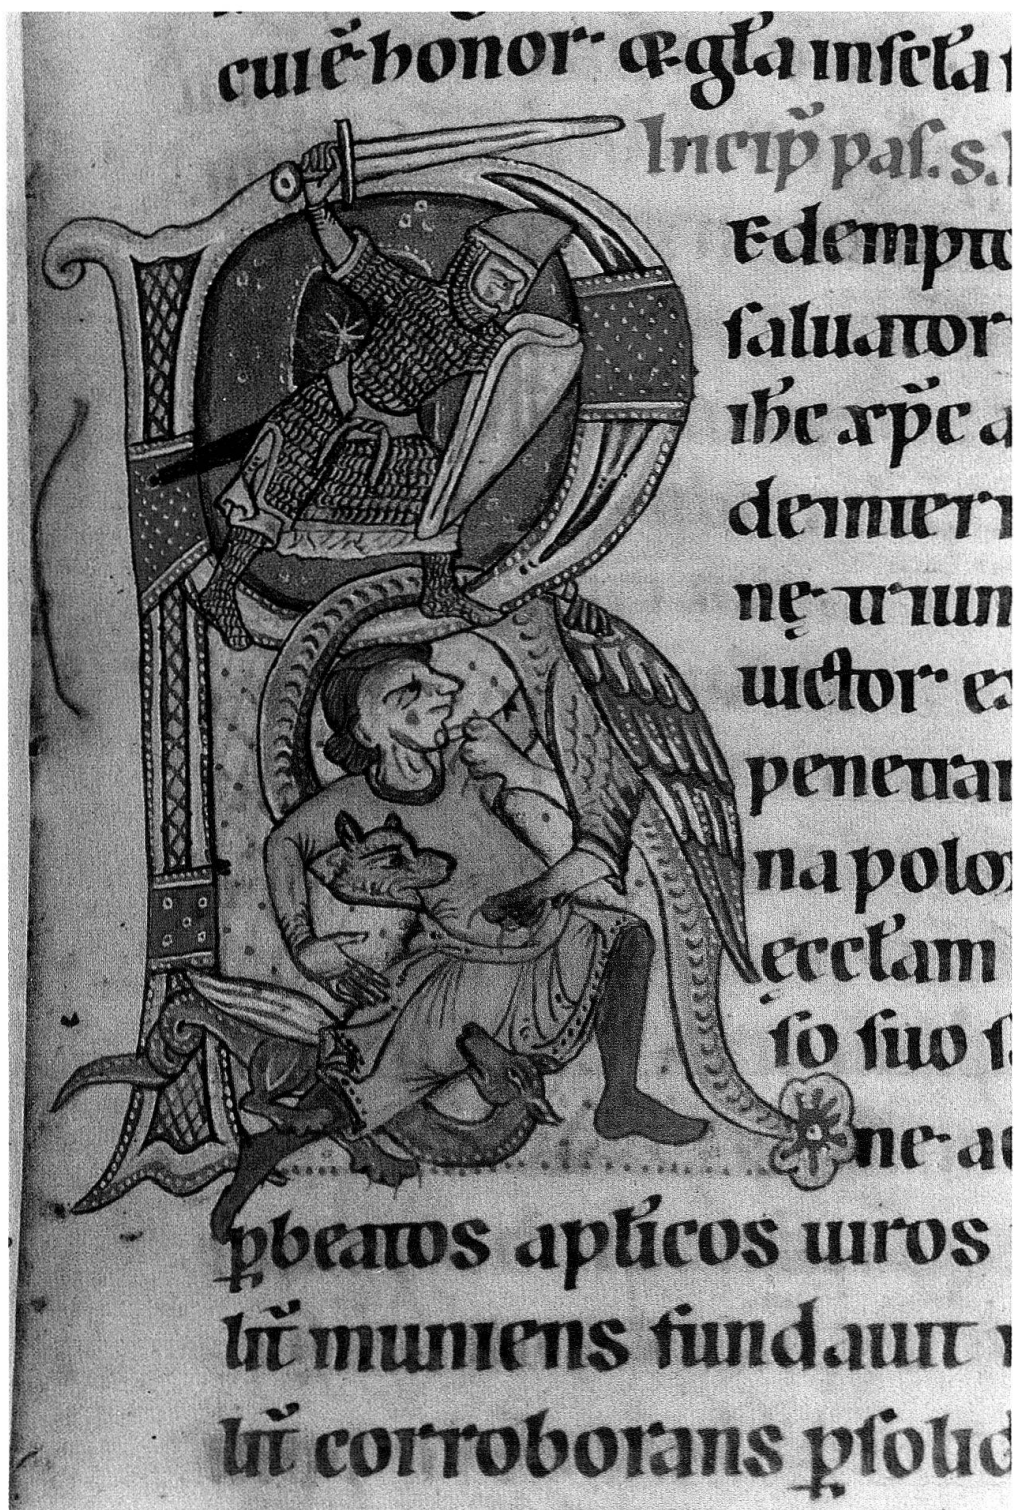 cui ē honor & gła in scła
Incip̄ pas. s.
REdempto
saluator
ih̄c xp̄c
de inter
nę triun
uictor ex
penetran
napolo
ęccłam
so suo s
ne ac
ꝑ beatos apłicos uiros
lit̄ muniens fundauit
lit̄ corroborans ꝑsolid